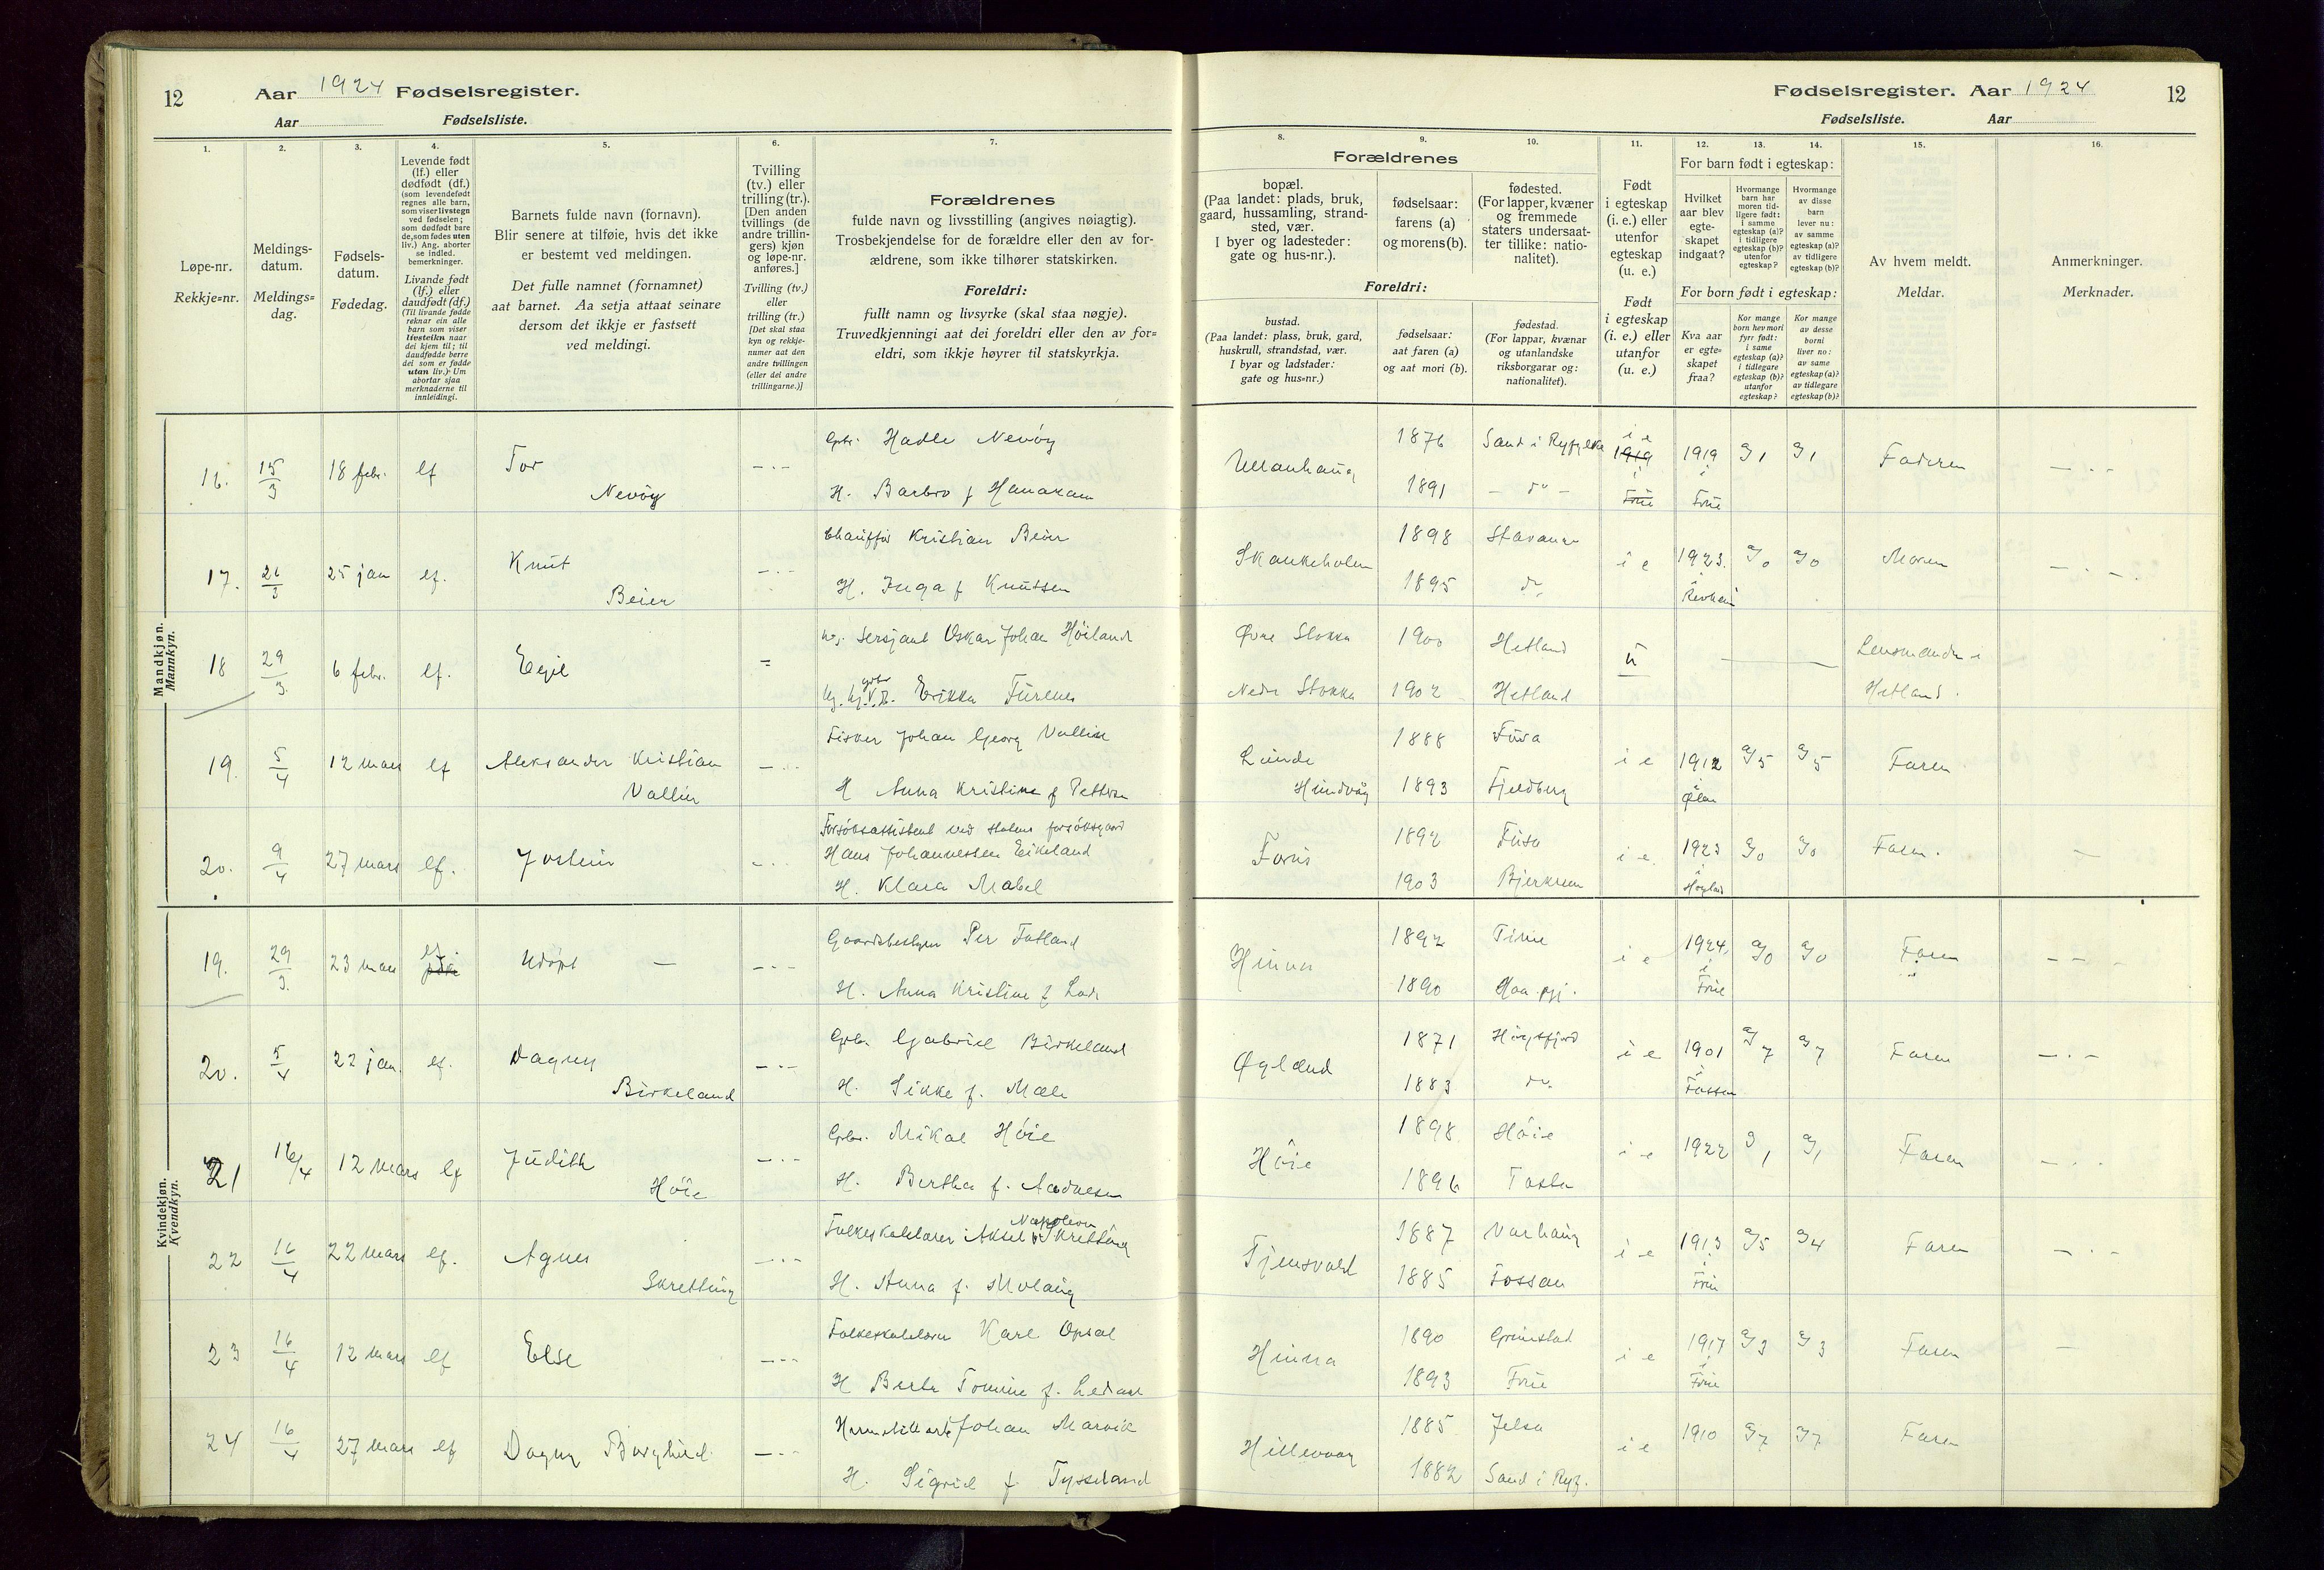 12
Aar 1924 Fødselsregister.
Aar Fødselsliste.
Fødselsregister. Aar 1924
12
Fødselsliste. Aar
1.
Løpe-nr.
Rekkje=nr.
2.
Meldings-
datum.
Meldings=
dag.
3.
Fødsels-
datum.
Fødedag.
4.
Levende født
(lf.) eller
dødfødt (df.)
(som levendefødt
regnes alle barn,
som viser livstegn
ved fødselen;
som dødfødt bare
de, som fødes uten
liv.) Ang. aborter
se indled.
bemerkninger.
Livande født
(lf.) eller
daudfødt (df.)
(Til livande fødde
reknar ein alle
barn som viser
livsteikn naar
dei kjem til; til
daudfødde berre
dei som er fødde
utan liv.) Um
abortar sjaa
merknaderne til
innleidingi.
5.
Barnets fulde navn (fornavn).
Blir senere at tilføie, hvis det ikke
er bestemt ved meldingen.
Det fulle namnet (fornamnet)
aat barnet. Aa setja attaat seinare
dersom det ikkje er fastsett
ved meldingi.
6.
Tvilling
(tv.) eller
trilling (tr.).
[Den anden
tvillings (de
andre trillin-
gers) kjøn
og løpe-nr.
anføres.]
Tvilling (tv.)
eller
trilling (tr.)
[Det skal staa
kyn og rekkje-
numer aat den
andre tvillingen
(eller dei andre
trillingarne.)]
7.
Forældrenes
fulde navn og livsstilling (angives nøiagtig).
Trosbekjendelse for de forældre eller den av for-
ældrene, som ikke tilhører statskirken.
Foreldri:
fullt namn og livsyrke (skal staa nøgje).
Truvedkjenningi aat dei foreldri eller den av for=
eldri, som ikkje høyrer til statskyrkja.
Forældrenes
8.
bopæl.
(Paa landet: plads, bruk,
gaard, hussamling, strand-
sted, vær.
I byer og ladesteder:
gate og hus-nr.).
9.
fødselsaar:
farens (a)
og morens (b).
10.
fødested.
(For lapper, kvæner
og fremmede
staters undersaat-
ter tillike: natio-
nalitet).
Foreldri:
bustad.
(Paa landet: plass, bruk, gard,
huskrull, strandstad, vær.
I byar og ladstader:
gate og hus=nr.)
fødselsaar:
aat faren (a)
og aat mori (b).
fødestad.
(For lappar, kvænar
og utanlandske
riksborgarar og:
nationalitet).
11.
Født
i egteskap
(i. e.) eller
utenfor
egteskap
(u. e.)
Født
i egteskap
(i. e.) eller
utanfor
(u. e.)
For barn født i egteskap:
12.
Hvilket
aar blev
egte-
skapet
indgaat?
13.
Hvormange
barn har
moren tid-
ligere født:
i samme
egteskap (a)?
i tidligere
egteskap (b)?
utenfor
egteskap?
14.
Hvormange
av disse
barn
lever nu:
av samme
egteskap (a)?
av tidligere
egteskap (b)?
For born født i egteskap:
Kva aar
er egte=
skapet
fraa?
Kor mange
born hev mori
fyrr født:
i same
egteskap (a)?
i tidlegare
egteskap (b)?
utanfor
egteskap?
Kor mange
av desse
borni
liver no:
av same
egteskap (a)?
av tidlegare
egteskap (b)?
15.
Av hvem meldt.
Meldar.
16.
Anmerkninger.
Merknader.
Mandkjøn.
Mannkyn.
16. 15/3 18 febr. lf Tor Nevöy
Gbr. Hadle Nevöy
H. Barbro f Hanakam
Ullanhaug 1876 Sand i Ryfylke 1891 do
i e 1919 i Frue 1919 i Frue g/1 g/1 Faderen
17. 26/3 25 jan lf. Knut Beier
Chauffør Kristian Beier
H. Inga f Knutsen
Skankeholm 1898 Stavanger 1895 do
i e 1923 g/0 g/0 Moren
18 29/3 6 febr. lf. Egil
Sersjant Oskar Johan Höiland
Erikka Furenes
Øvre Stokka 1900 Hetland
Nedre Stokka 1902 Hetland
u Lensmanden i Hetland.
19. 5/4 12 mars lf Aleksander Kristian Vallin
Fisker Johan Georg Vallin
H Anna Kristine f Petterson
Lunde Hundvåg 1888 Fusa 1893 Fjeldberg
i e 1912 i Ølen g/5 g/5 Faren
20. 9/4 27 mars lf. Jostein
Forsöksassistent ved statens forsöksgaard
Hans Johannessen Eikeland
H. Klara Mabel
Forus 1892 Fusa 1903 Bjerkreim
i e 1923 i Høgland g/0 g/0 Faren.
Kvindekjøn.
Kvendkyn.
19. 29/3 23 mars lf Udöpt —
Gaardsbestyrer Per Fatland
H. Anna Kristine f Lode
Hinna 1892 Time 1890 Haa pgj.
i e 1924 i Frue g/0 g/0 Faren
20. 5/4 22 jan. lf. Dagny Birkeland
Gbr. Gabriel Birkeland
H. Sikke f. Mæle
Øgland 1871 Høgsfjord 1883 do.
i e 1901 i Fossan g/7 g/7 Faren
21 16/4 12 mars lf Judith Höie
Gbr. Mikal Höie
H. Bertha f. Aadnesen
Höie 1898 Höie 1896 Tasta
i e 1922 g/1 g/1 Faren
22 16/4 22 mars lf. Agnes Skretting
Folkeskolelærer Aksel Napoleon Skretting
H. Anna f. Molaug
Tjensvold 1887 Varhaug 1885 Fossan
i e 1913 i Frue g/5 g/4 Faren
23 16/4 12 mars lf Else
Folkeskolelærer Karl Opsal
H Berta Tomine f. Ledaal
Hinna 1890 Grimstad 1893 Frue
i e 1917 i Frue g/3 g/3 Faren
24 16/4 27 mars lf Dagny Borghild.
Johan Marvik
H. Sigrid f Tysseland
Hillevaag 1885 Jelsa 1882 Sand i Ryf.
i e 1910 g/7 g/7 Faren